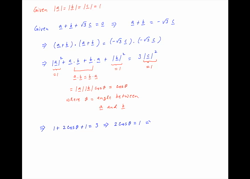 Given |a| = |b| = |c| = 1
Given a + b + √3 c = 0 ⇒ a + b = -√3 c
⇒ (a+b).(a+b) = (-√3 c).(-√3 c)
⇒ |a|² + a.b + b.a + |b|² = 3|c|²
=1 =1 =1
a.b = b.a
= |a||b| cosθ = cosθ
where θ = angle between
a and b
⇒ 1 + 2cosθ + 1 = 3 ⇒ 2cosθ = 1